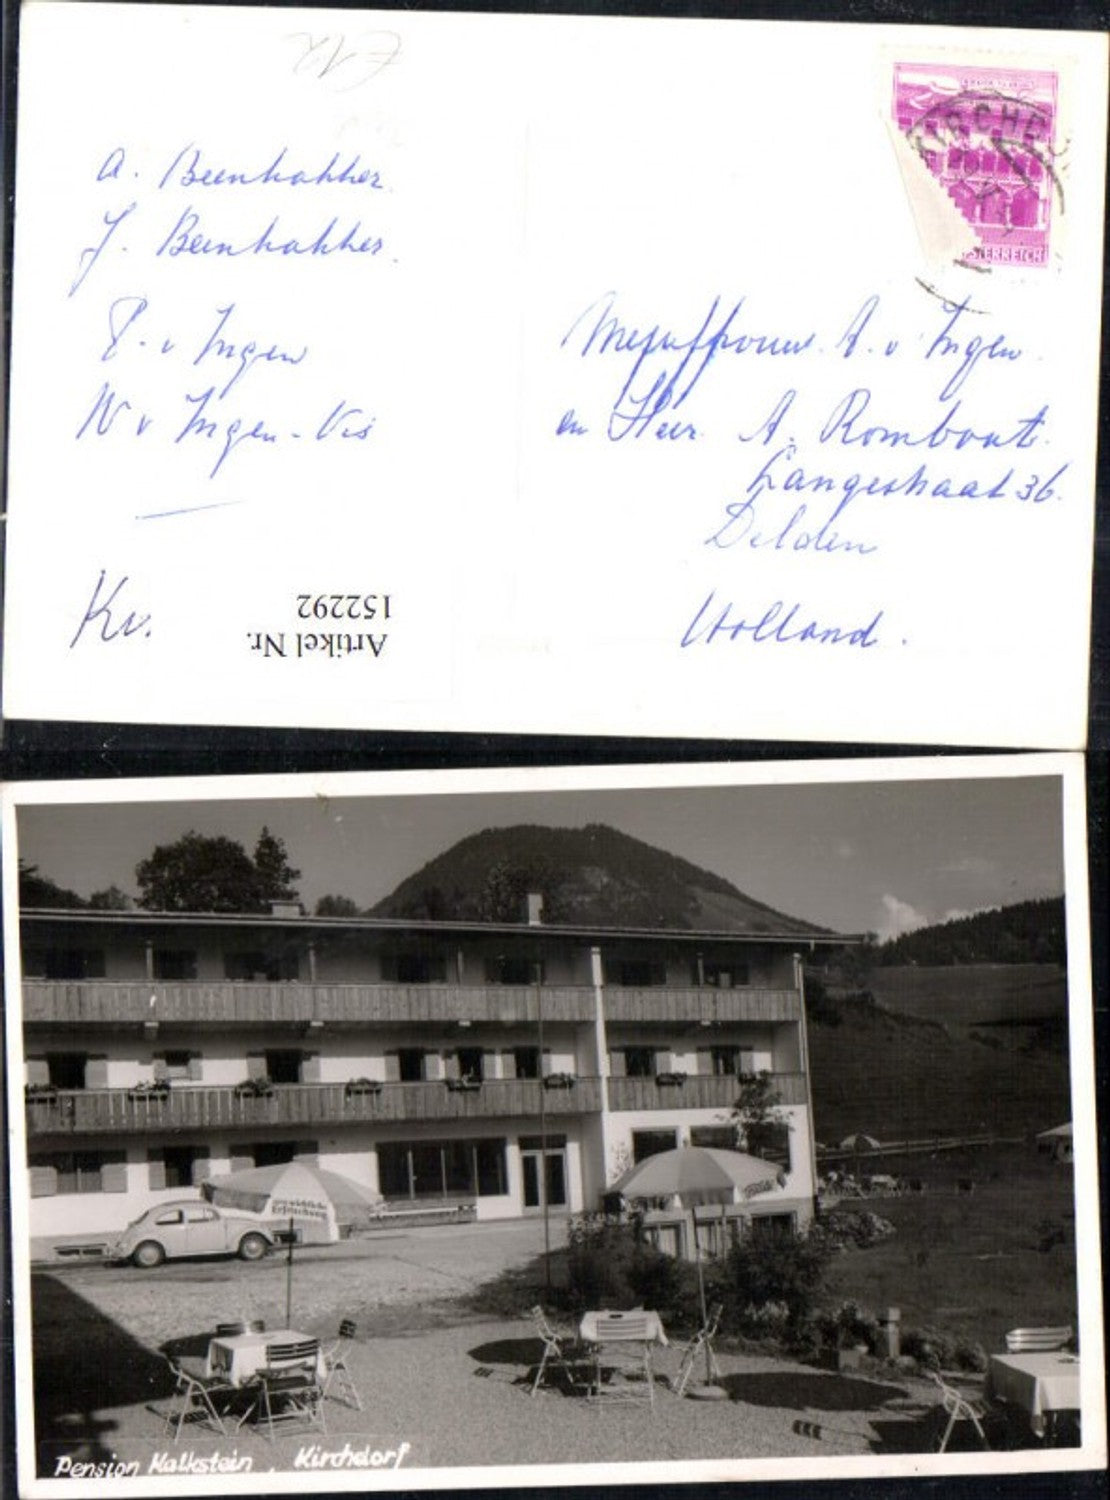 A. Beenhakker
J. Beenhakker.
P. v Ingen
W v Ingen-Vis
Kv.
Artikel Nr.
152292
KIRCHDO
STERREICH
Mejuffrouw A. v Ingen.
en Heer. A. Rombout.
Langestraat 36.
Delden
Holland.
Erfrischung
Pension Kalkstein, Kirchdorf